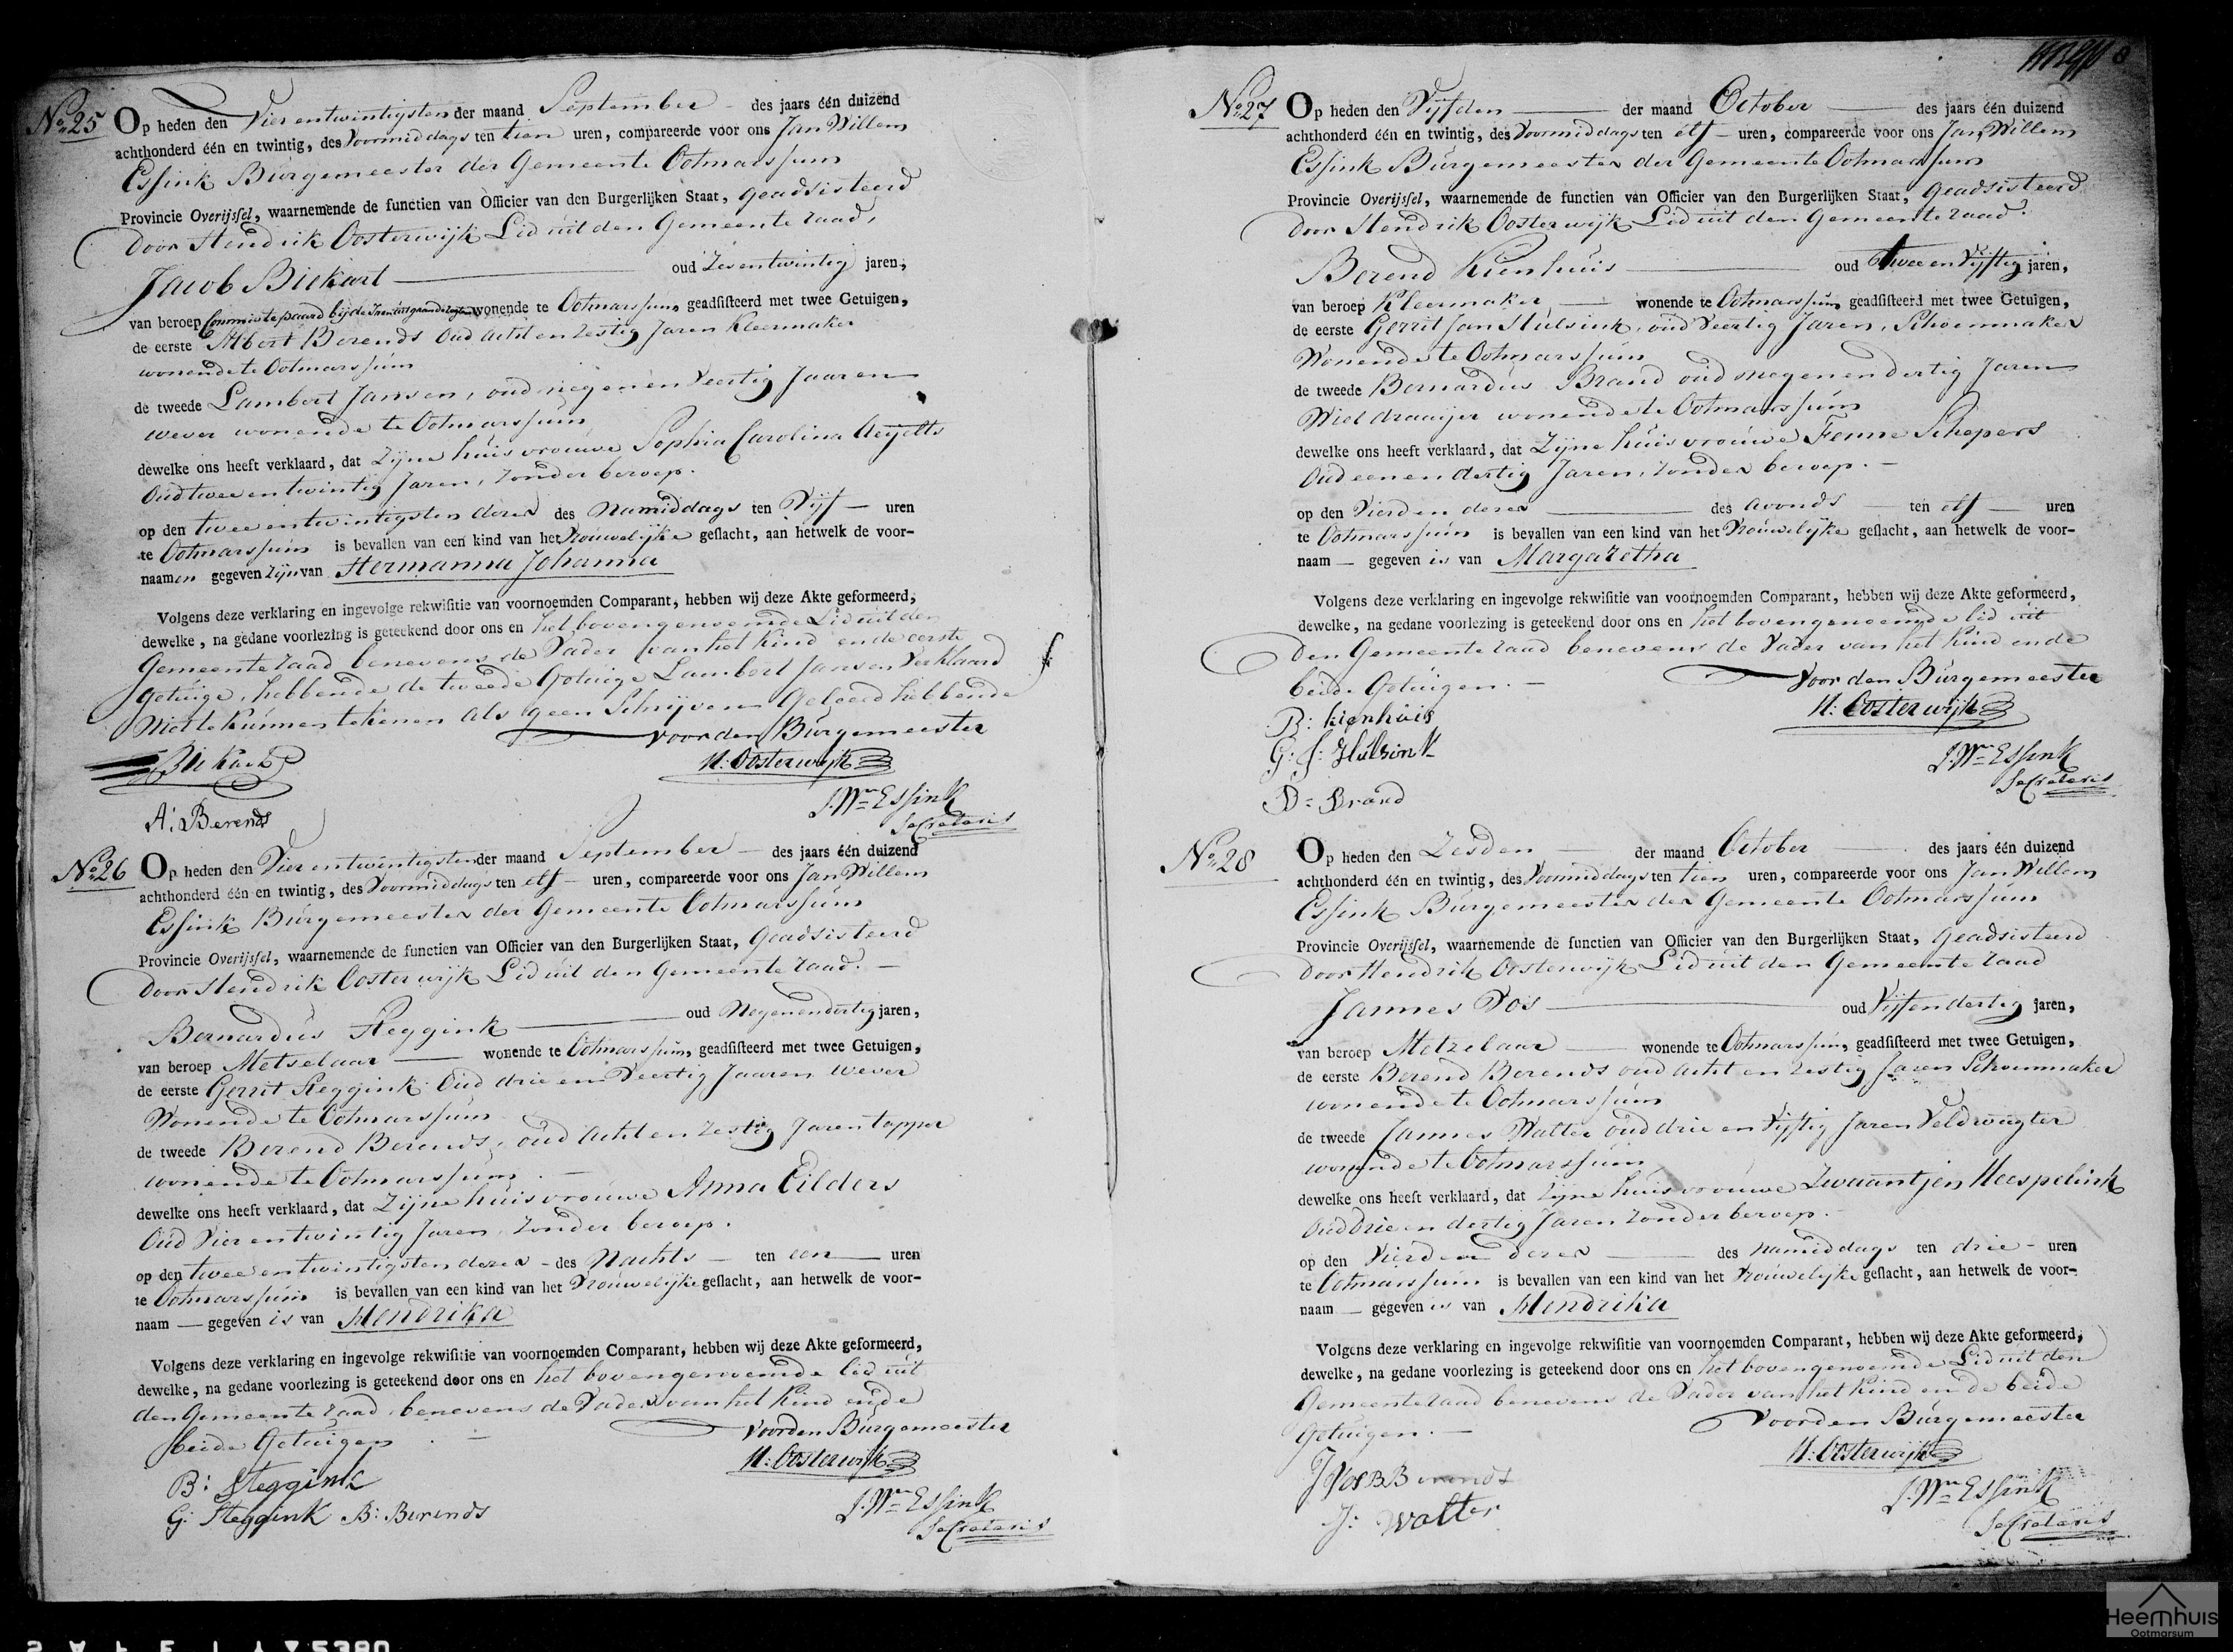 No 25 Op heden den Vier entwintigsten der maand September - des jaars één duizend
achthonderd één en twintig, des Voormiddags ten tien uren, compareerde voor ons Jan Willem
Essink Burgemeester der Gemeente Ootmarssum
Provincie Overijssel, waarnemende de functien van Officier van den Burgerlijken Staat, geadsisteerd
door Hendrik Oosterwijk Lid uit den Gemeente raad,
Jacob Biekart oud Zesentwintig jaren,
van beroep Commies te paard bij de wonende te Ootmarssum, geadsisteerd met twee Getuigen,
de eerste Albert Berends oud acht en zestig Jaren Kleermaker
wonende te Ootmarssum
de tweede Lambert Jansen, oud negen en Veertig Jaaren
wever wonende te Ootmarssum
dewelke ons heeft verklaard, dat Zijne huisvrouwe Sophia Carolina
Oud twee entwintig Jaren, Zonder beroep.
op den twee entwintigsten dezer des Namiddags ten Vijf - uren
te Ootmarssum is bevallen van een kind van het Vrouwelijke geslacht, aan hetwelk de voor-
naamen gegeven zijn van Hermanna Johanna
Volgens deze verklaring en ingevolge rekwisitie van voornoemden Comparant, hebben wij deze Akte geformeerd,
dewelke, na gedane voorlezing is geteekend door ons en het bovengenoemde Lid uit den
Gemeente raad benevens de Vader van het Kind en de eerste
getuige, hebbende de tweede Getuige Lambert Jansen Verklaard
Niet te Kunnen tekenen als geen Schrijven Geleerd hebbende
Voor den Burgemeester
Biekart H: Oosterwijk
J: Wm Essink
Secretaris
A: Berends
No 26 Op heden den Vier entwintigsten der maand September - des jaars één duizend
achthonderd één en twintig, des Voormiddags ten elf - uren, compareerde voor ons Jan Willem
Essink Burgemeester der Gemeente Ootmarssum
Provincie Overijssel, waarnemende de functien van Officier van den Burgerlijken Staat, Geadsisteerd
door Hendrik Oosterwijk Lid uit den Gemeente raad. -
Bernardus Steggink oud Negenendertig jaren,
van beroep Metselaar wonende te Ootmarssum, geadsisteerd met twee Getuigen,
de eerste Gerrit Steggink Oud drie en Veertig Jaaren wever
Wonende te Ootmarssum
de tweede Berend Berends, oud acht en zestig Jaren tapper
wonende te Ootmarssum. -
dewelke ons heeft verklaard, dat Zijne huisvrouwe Anna Eilders
Oud Vier entwintig Jaren, Zonder beroep.
op den twee entwintigsten dezer - des Nachts - ten een uren
te Ootmarssum is bevallen van een kind van het Vrouwelijke geslacht, aan hetwelk de voor-
naam - gegeven is van Hendrika
Volgens deze verklaring en ingevolge rekwisitie van voornoemden Comparant, hebben wij deze Akte geformeerd,
dewelke, na gedane voorlezing is geteekend door ons en het bovengenoemde lid uit
den Gemeente raad benevens de Vader van het Kind en de
beide Getuigen. -
Voor den Burgemeester
B: Steggink H: Oosterwijk
G: Steggink B: Berends
J: Wm Essink
Secretaris
No 27 Op heden den Vijfden der maand October des jaars één duizend
achthonderd één en twintig, des Voormiddags ten elf - uren, compareerde voor ons Jan Willem
Essink Burgemeester der Gemeente Ootmarssum
Provincie Overijssel, waarnemende de functien van Officier van den Burgerlijken Staat, Geadsisteerd
door Hendrik Oosterwijk Lid uit den Gemeente raad.
Berend Kienhuis oud twee en Vijftig jaren,
van beroep Kleermaker wonende te Ootmarssum geadsisteerd met twee Getuigen,
de eerste Gerrit Jan Hulsink, oud Veertig Jaren, Schoenmaker
Wonende te Ootmarssum
de tweede Bernardus Brand oud negenendertig Jaren
Wieldraaijer wonende te Ootmarssum
dewelke ons heeft verklaard, dat Zijne huisvrouwe Fenne Schepers
Oud eenendertig Jaren, Zonder beroep. -
op den Vierden dezer des avonds ten elf uren
te Ootmarssum is bevallen van een kind van het Vrouwelijke geslacht, aan hetwelk de voor-
naam - gegeven is van Margaretha
Volgens deze verklaring en ingevolge rekwisitie van voornoemden Comparant, hebben wij deze Akte geformeerd,
dewelke, na gedane voorlezing is geteekend door ons en het bovengenoemde lid uit
den Gemeente raad benevens de Vader van het Kind en de
beide Getuigen. -
Voor den Burgemeester
B: kienhuis H: Oosterwijk
G: J: Hulsink
J: Wm Essink
Secretaris
Brand
No 28 Op heden den Zesden der maand October des jaars één duizend
achthonderd één en twintig, des Voormiddags ten tien uren, compareerde voor ons Jan Willem
Essink Burgemeester der Gemeente Ootmarssum
Provincie Overijssel, waarnemende de functien van Officier van den Burgerlijken Staat, geadsisteerd
door Hendrik Oosterwijk Lid uit den Gemeente raad
Jannes Vos oud Vijfendertig jaren,
van beroep Metzelaar wonende te Ootmarssum, geadsisteerd met twee Getuigen,
de eerste Berend Berends oud acht en zestig Jaren Schoenmaker
wonende te Ootmarssum
de tweede Jannes Walter oud drie en Vijftig Jaren Veldwagter
wonende te Ootmarssum
dewelke ons heeft verklaard, dat Zijne huisvrouwe Zwaantjen Heespelink
Oud Drie en dertig Jaren Zonder beroep. -
op den Vierden dezer des namiddags ten drie - uren
te Ootmarssum is bevallen van een kind van het Vrouwelijke geslacht, aan hetwelk de voor-
naam - gegeven is van Hendrika
Volgens deze verklaring en ingevolge rekwisitie van voornoemden Comparant, hebben wij deze Akte geformeerd,
dewelke, na gedane voorlezing is geteekend door ons en het bovengenoemde Lid uit den
Gemeente raad benevens de Vader van het Kind en de beide
Getuigen. -
Voor den Burgemeester
H: Oosterwijk
J Vos B Berends
J: Walter
J: Wm Essink
Secretaris
Heemhuis
Ootmarsum